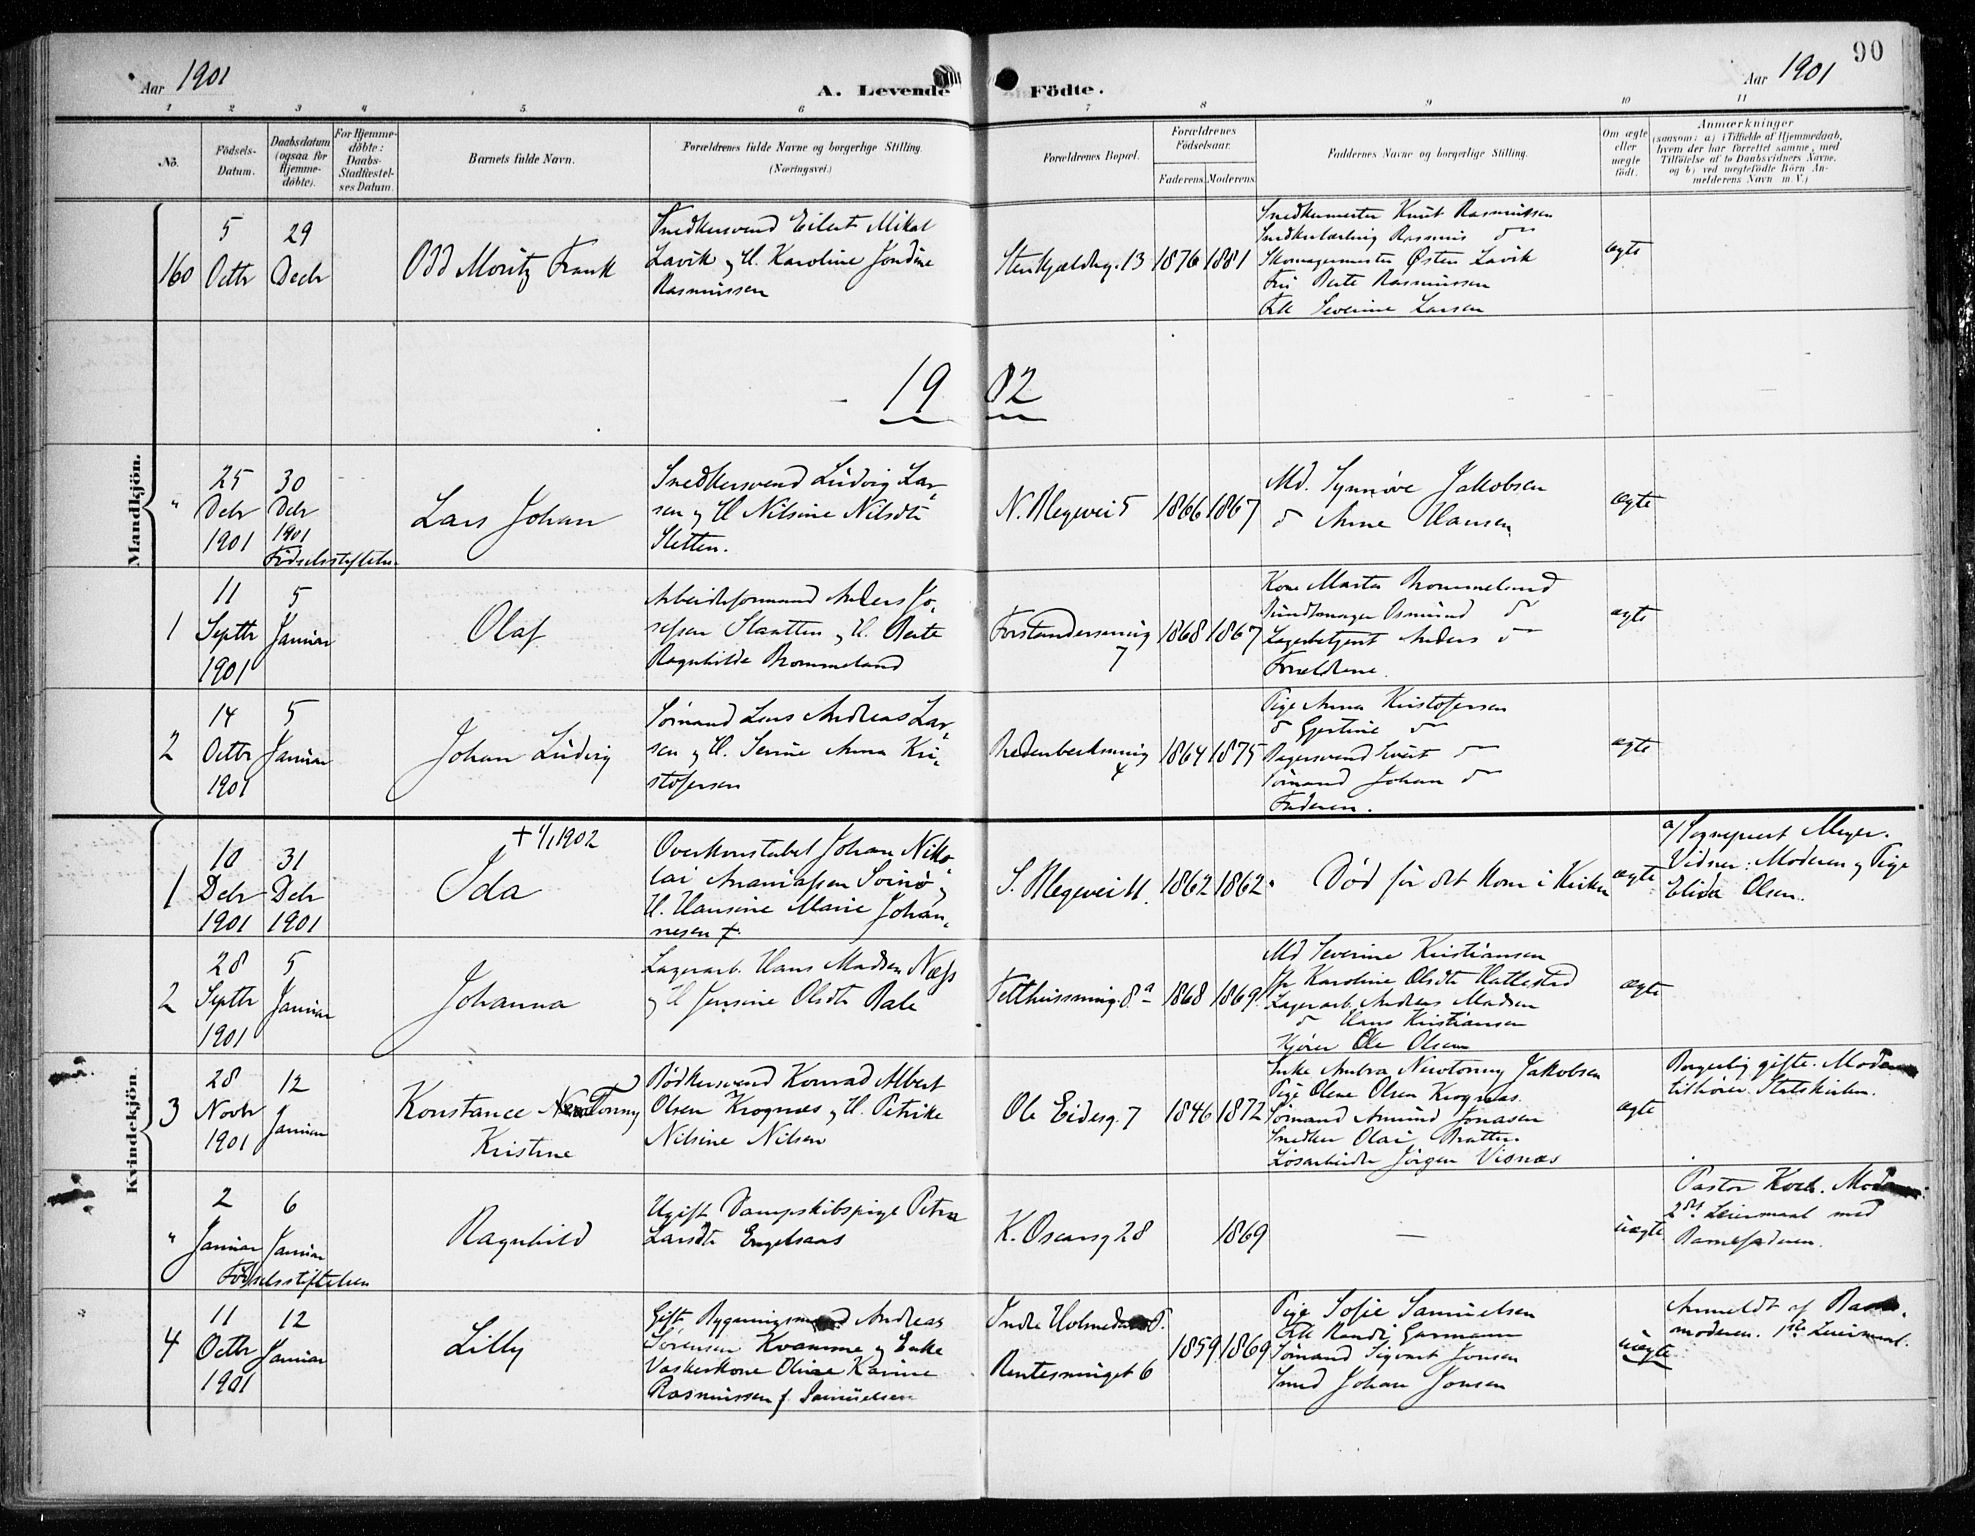 90
Aar 1901
A. Levende Födte.
Aar 1901
1 2 3 4 5. 6 7 8 9 10 11
No.
Födsels-
Datum.
Daabsdatum
(ogsaa for
Hjemme-
döbte).
For Hjemme-
döbte:
Daabs-
Stadfæstel-
ses Datum.
Barnets fulde Navn.
Forældrenes fulde Navne og borgerlige Stilling.
(Næringsvei.)
Forældrenes Bopæl.
Forældrenes
Födselsaar.
Faderens.
Moderens.
Faddernes Navne og borgerlige Stilling.
Om ægte
eller
uægte
födt.
Anmærkninger
(saasom: a) i Tilfælde af Hjemmedaab,
hvem der har forrettet samme, med
Tilföielse af to Daabsvidners Navne.
og b) ved uægtefödte Börn An-
melderens Navn m. V.)
Mandkjön.
160
5
Octbr
29
Decbr
Odd Moritz Frank
Snedkersvend Eilert Mikal
Lavik og H. Karoline Jondine
Rasmussen
Stenkjældg. 13
1876
1881
Snedkermester Knut Rasmussen
Snedkerlærling Rasmus do
Skomagermester Østen Lavik
Fru Berte Rasmussen
Frk Severine Larsen
ægte
1902
"
25
Debr
1901
30
Debr
1901
Födselsstiftelsen.
Lars Johan
Snedkersvend Ludvig Lar-
sen og H Nilsine Nilsdtr
Sletten.
N. Blegevei 5
1866
1867
Md. Synnöve Jakobsen
d Anne Hansen
ægte
1
11
Septbr
1901
5
Januar
Olaf
Arbeidsformand Anders Jo-
sefsen Slaatten og H. Berte
Ragnhilda Brommeland
Forstandersmug
7
1868
1867
Kone Marta Brommeland
Buntmager Osmund do
Lagerbetjent Anders do
Forældrene.
ægte
2
14
Octbr
1901
5
Januar
Johan Ludvig
Sömand Lars Andreas Lar-
sen og H. Serine Anna Kri-
stofersen
Bredenbecksmug
4
1864
1875
Pige Anna Kristofersen
d Gjertine do
Bagersvend Evert do
Sömand Johan do
Faderen.
ægte
Kvindekjön.
1
10
Debr
1901
31
Debr
1901
+ 1/1 1902
Ida
Overkonstabel Johan Niko-
lai Ananiassen Svinö og
H. Hansine Marie Johan-
nesen +.
S. Blegevei 11.
1862
1862
Död för det kom i Kirken
ægte
a/ Sognepræst Meyer.
Vidner: Moderen og Pige
Elida Olsen.
2
28
Septbr
1901
5
Januar
Johanna
Lagerarb. Hans Madsen Næss
og H Jensine Olsdtr Bale
Fetthussmug. 8a
1868
1869
Md Severine Kristiansen
Karoline Olsdtr Hattestad
Lagerarb. Andreas Madsen
d Hans Kristiansen
Kjörer Ole Olsen
ægte
3
28
Novbr
1901
12
Januar
Konstance Tonny
Kristine
Bödkersvend Konrad Albert
Olsen Krognæs og H. Petrike
Nilsine Nilsen
Ole Eidesg. 7
1846
1872
Enke Jakobsen
Pige Olene Olsen Krognæs.
Sömand Amund Jonassen
Snedker Olai Bratten
Lösarbeider Jörgen Visnæs
ægte
Borgerlig gifte. Moderen
tilhörer Statskirken.
"
2
Januar
6
Januar
Födselsstiftelsen
Ragnhild
Ugift Dampskibspige Petra
Larsdtr Engelsaas
K. Oscarsg 28
1869
—
uægte
Pastor Koch. Moderens
2det Leiermaal med
Barnefaderen.
4
11
Octbr
1901
12
Januar
Lilly
Gift Bygningsmand Andreas
Sörensen Kvamme og Enke
Vaskerkone Oline Karine
Rasmussen f. Samuelsen
Indre
Rentesmuget 6
1859
1869
Pige Sofie Samuelsen
Frk Randi Garmann
Sömand Sigvart Jonsen
Smed Johan Jonsen
uægte
Anmeldt af Barne-
moderen. 1ste Leiermaal.